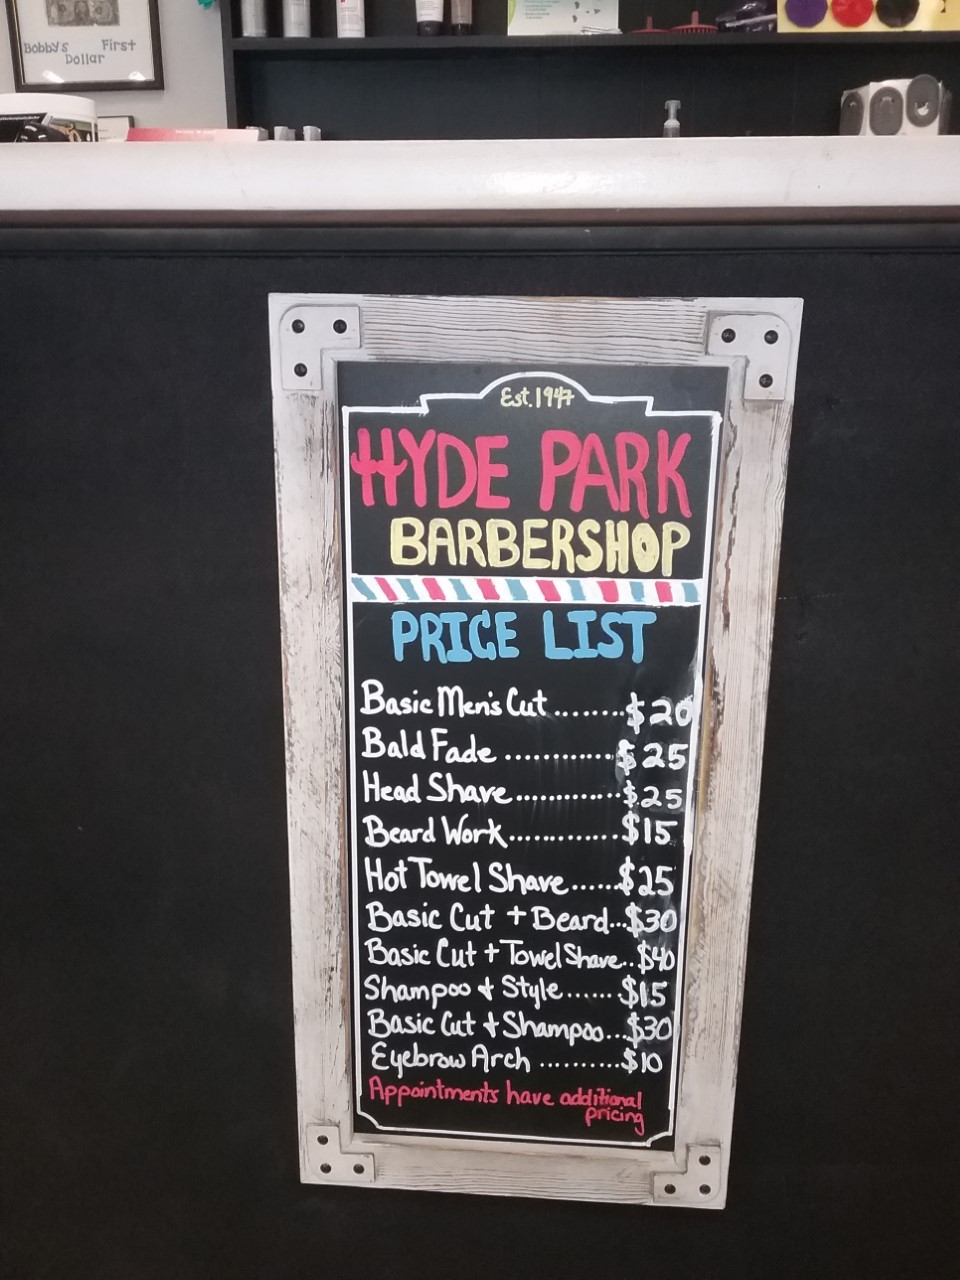 Bobby's First
Dollar
Est. 1947
HYDE PARK
BARBERSHOP
PRICE LIST
Basic Men's Cut........$20
Bald Fade.............$25
Head Shave.............$25
Beard Work.............$15
Hot Towel Shave......$25
Basic Cut + Beard...$30
Basic Cut + Towel Shave..$40
Shampoo & Style......$15
Basic Cut & Shampoo...$30
Eyebrow Arch .........$10
Appointments have additional
pricing